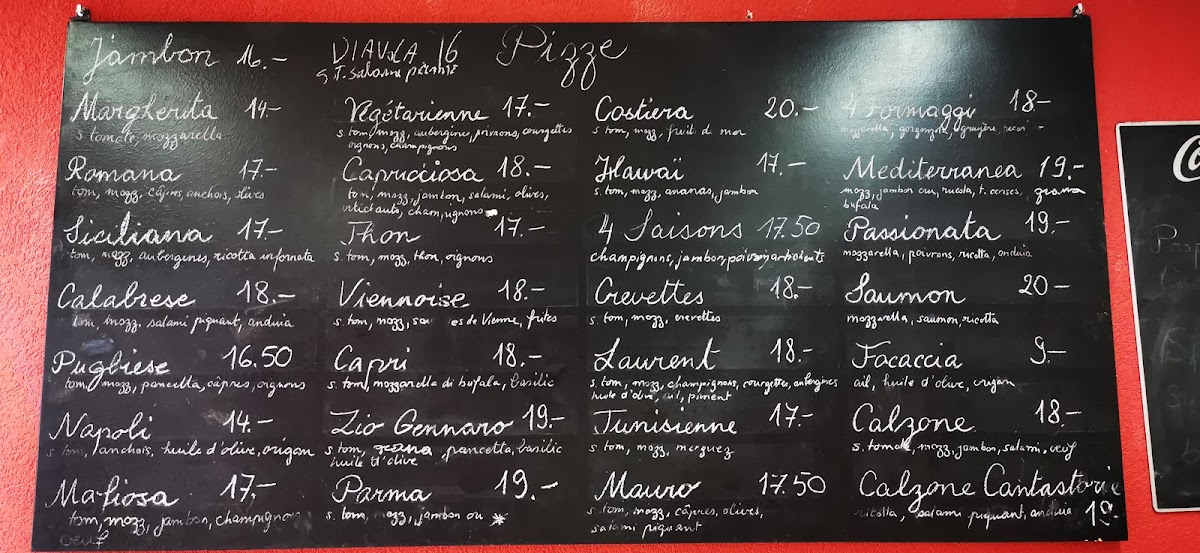 Jambon 16.-
DIAVOLA 16
s. T. salami piquante
Pizze
Margherita 14.-
s tomate, mozzarella
Romana 17.-
tom, mozz, câpres anchois, olives
Siciliana 17.-
tom, mozz, aubergines, ricotta infornata
Calabrese 18.-
tom, mozz, salami piquant, anduia
Pugliese 16.50
tom, mozz, pancetta, câpres, oignons
Napoli 14.-
s, tom, anchois, huile d'olive, origan
Mafiosa 17.-
tom, mozz, jambon, champignons
oeuf
Végétarienne 17.-
s. tom, mozz, aubergines, poivrons, courgettes
oignons, champignons
Capricciosa 18.-
tom, mozz, jambon, salami, olives,
artichauts, champignons
Thon 17.-
s. tom, mozz, thon, oignons
Viennoise 18.-
s. tom, mozz, sau es de Vienne, frites
Capri 18.-
s. tom, mozzarella di bufala, basilic
Zio Gennaro 19.-
s, tom, pancetta, basilic
huile d'olive
Parma 19.-
s. tom, mozz, jambon cru
Costiera 20.-
s tom, mozz, fruit de mer
Hawaï 17.-
s. tom, mozz, ananas, jambon
4 Saisons 17.50
champignons, jambon, poivron, artichauts
Crevettes 18.-
s. tom, mozz, crevettes
Laurent 18.-
s. tom, mozz, champignons, courgettes, aubergines
huile d'olive, ail, piment
Tunisienne 17.-
s tom, mozz, merguez
Mauro 17.50
s. tom, mozz, câpres, olives,
salami piquant
4 Formaggi 18-
mozzarella, gorgonzola, gruyère, pecor
Mediterranea 19.-
mozz, jambon cru, rucola, t. cerises, grana
bufala
Passionata 19.-
mozzarella, poivrons, ricotta, anduia
Saumon 20-
mozzarella, saumon, ricotta
Focaccia 9.-
ail, huile d'olive, origan
Calzone 18.-
s. tomate, mozz, jambon, salami, oeuf
Calzone Cantastorie
ricotta, salami piquant, anduia 19.-